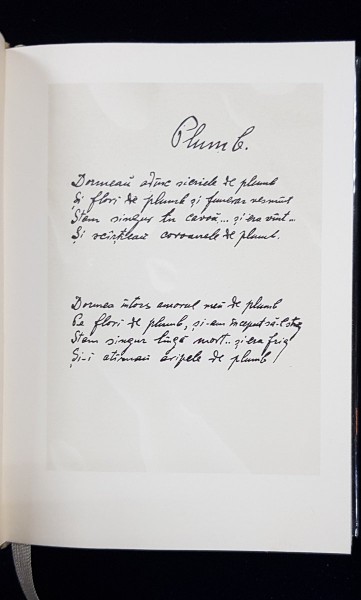 Plumb.
Dormeau adînc sicriele de plumb
Și flori de plumb și funerar vesmînt
Stam singur în cavou... și era vînt..
Și scîrțîeau coroanele de plumb.
Dormea întors amorul meu de plumb
Pe flori de plumb, și-am început să-l strig
Stam singur lîngă mort.. și era frig
Și-i atîrnau aripele de plumb